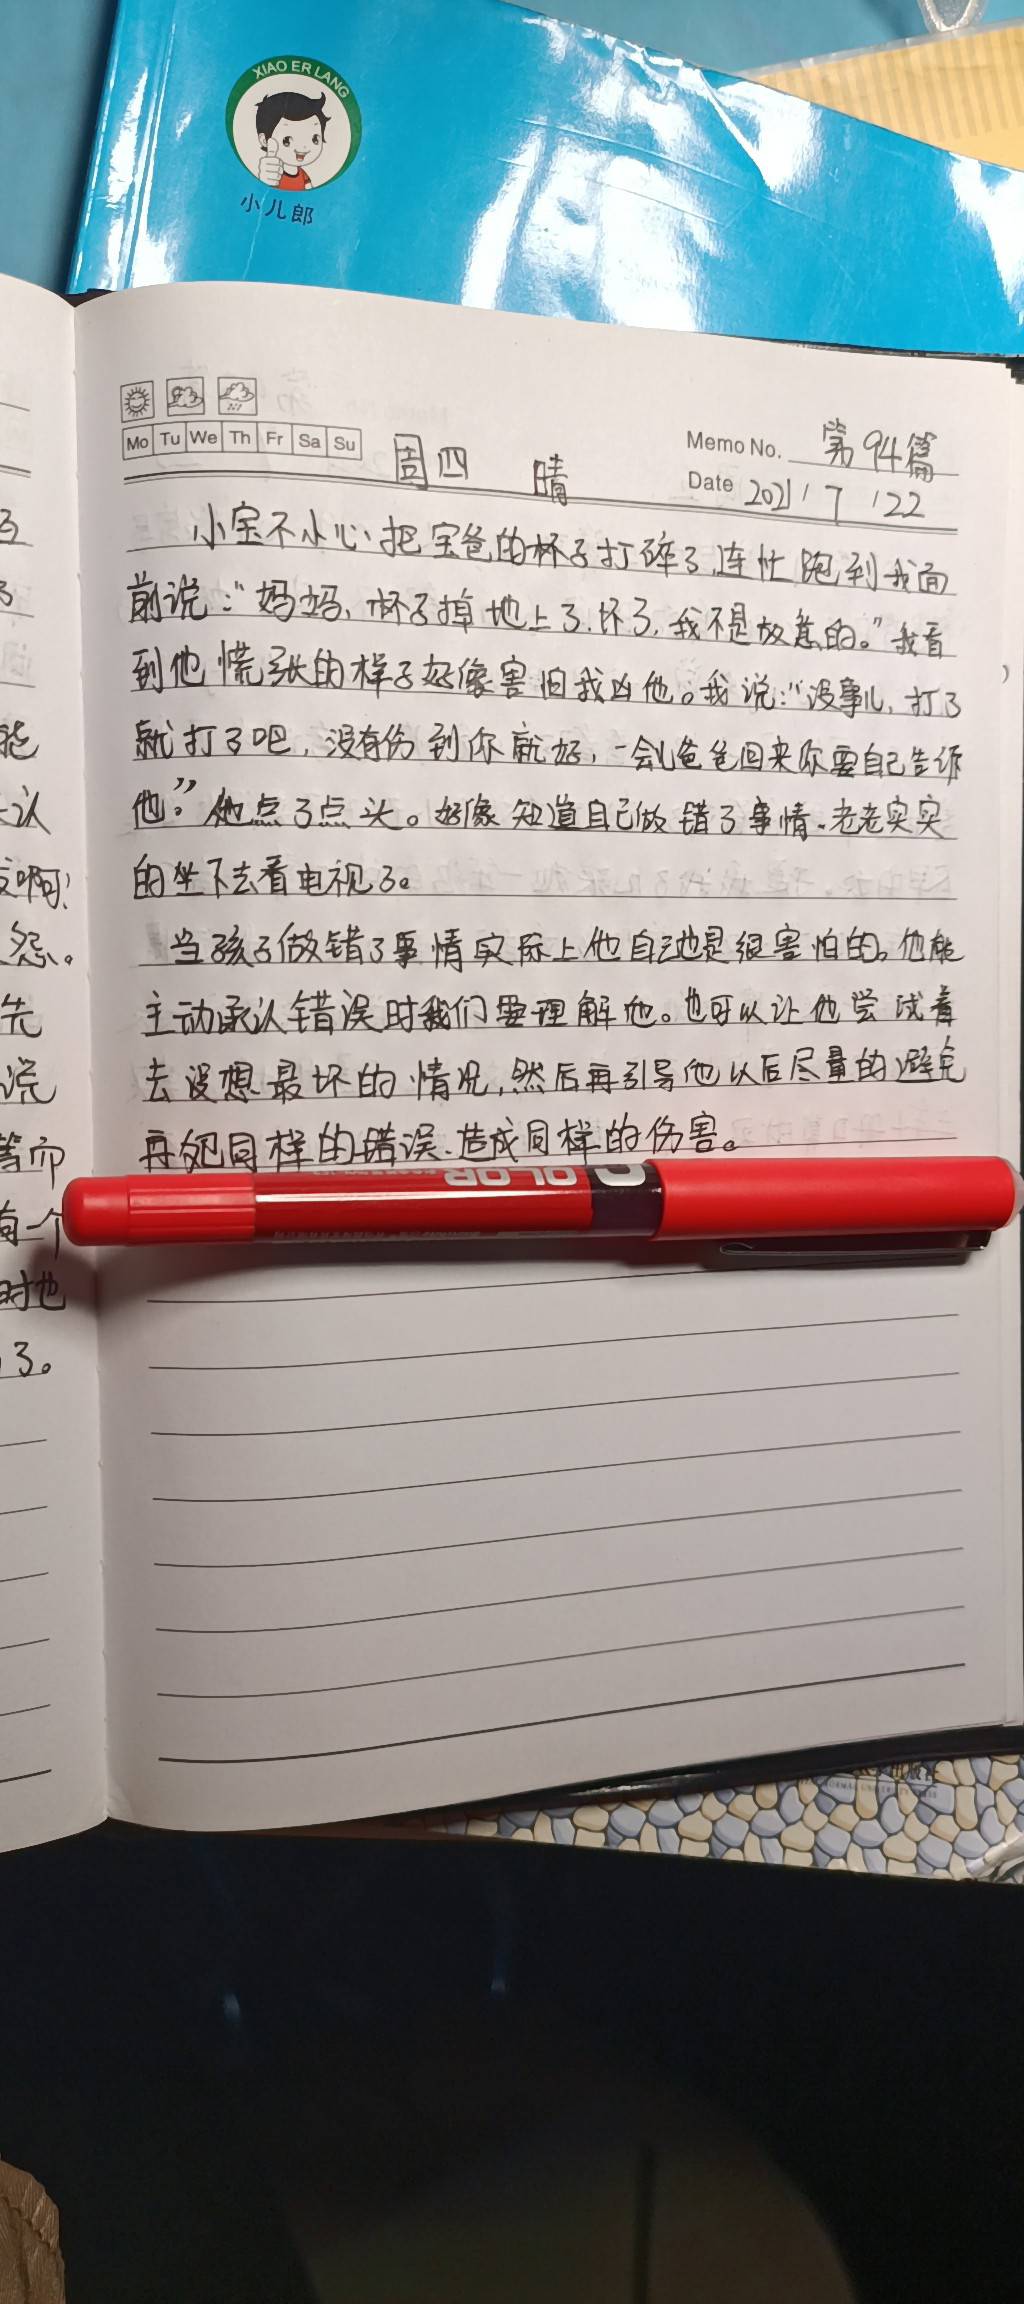 XIAO ER LANG
小儿郎
Mo Tu We Th Fr Sa Su
周四 晴
Memo No. 第94篇
Date 2021/7/22
小宝不小心把宝爸的杯子打碎了,连忙跑到我面
前说:"妈妈,杯子掉地上了.坏了,我不是故意的。"我看
到他慌张的样子好像害怕我凶他。我说:"没事儿,打了
就打了吧,没有伤到你就好,一会儿爸爸回来你要自己告诉
他。"他点了点头。好像知道自己做错了事情.老老实实
的坐下去看电视了。
当孩子做错了事情实际上他自己也是很害怕的。他能
主动承认错误时我们要理解他。也可以让他尝试着
去设想最坏的情况,然后再引导他以后尽量的避免
再犯同样的错误.造成同样的伤害。
COLOR
能
认
啊!
怨。
先
说
等而
有一个
时也
了。
出版社